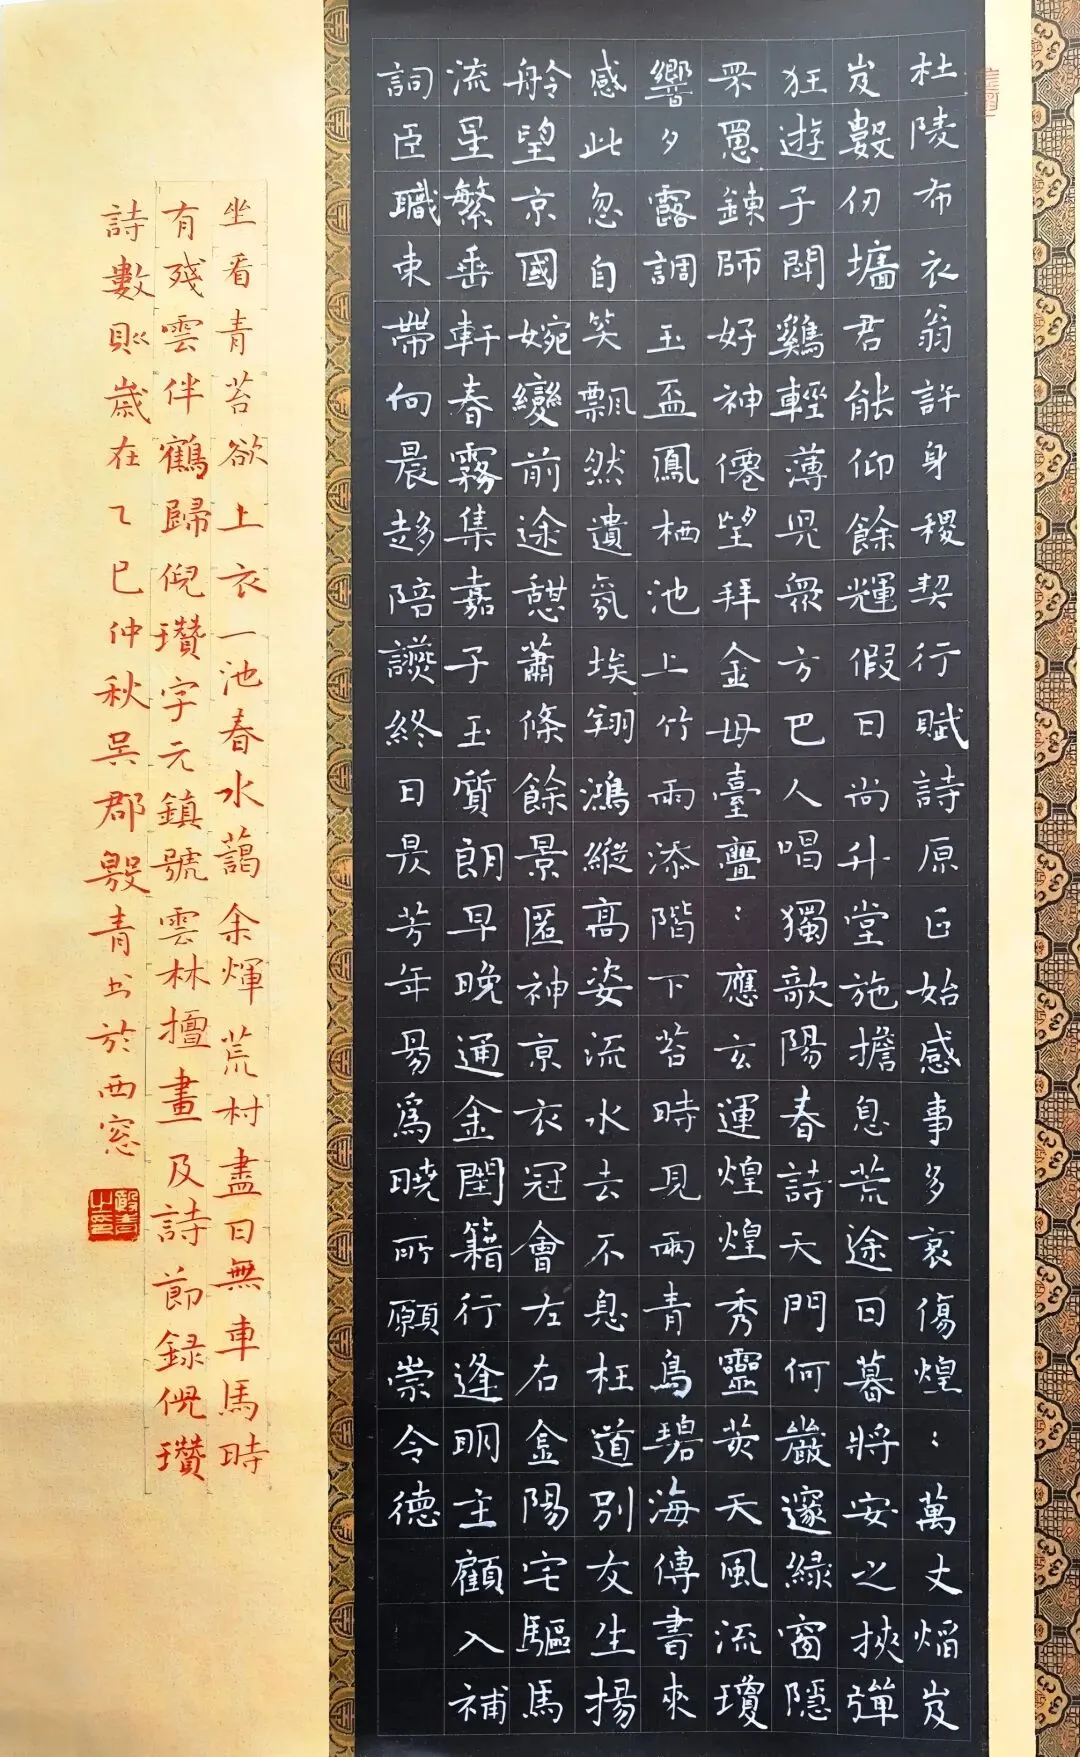 杜陵布衣翁許身稷契行賦詩原正始感事多哀傷煌:萬丈焰岌
岌數仞墻君能仰餘輝假日尚升堂施擔息荒途日暮將安之挾彈
狂遊子鬪雞輕薄兒眾方巴人唱獨歌陽春詩天門何嚴邃綠窗隱
罘罳鍊師好神僊望拜金母臺亹:應玄運煌煌秀靈荄天風流瓊
響夕露調玉盃鳳栖池上竹雨添階下苔時見兩青鳥碧海傳書來
感此忽自笑飄然遺氛埃翔鴻縱高姿流水去不息枉道別友生揚
舲望京國婉孌前途憩蕭條餘景匿神京衣冠會左右金陽宅驅馬
流星繁垂軒春霧集嘉子玉質朗早晚通金閨籍行逢明主顧入補
詞臣職束帶向晨趍陪讌終日昃芳年易為曉所願崇令德
坐看青苔欲上衣一池春水藹余煇荒村盡日無車馬時
有殘雲伴鶴歸倪瓚字元鎮號雲林擅畫及詩節録倪瓚
詩數則歲在乙巳仲秋吳郡殷青书於西窓
殷青之印